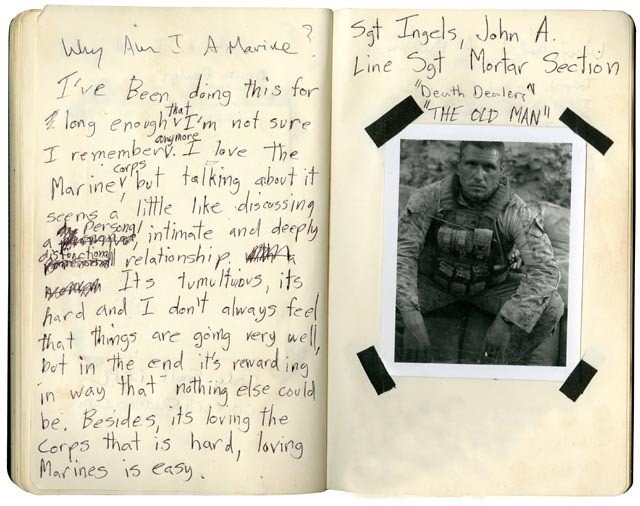 Why Am I A Marine?
I've Been doing this for
long enough that I'm not sure
I remember anymore. I love the
Marine corps, but talking about it
seems a little like discussing
a personal, intimate and deeply
disfunctional relationship.
Its tumultuous, its
hard and I don't always feel
that things are going very well,
but in the end it's rewarding
in way that nothing else could
be. Besides, its loving the
Corps that is hard, loving
Marines is easy.
Sgt Ingels, John A.
Line Sgt Mortar Section
"Death Dealers"
"THE OLD MAN"